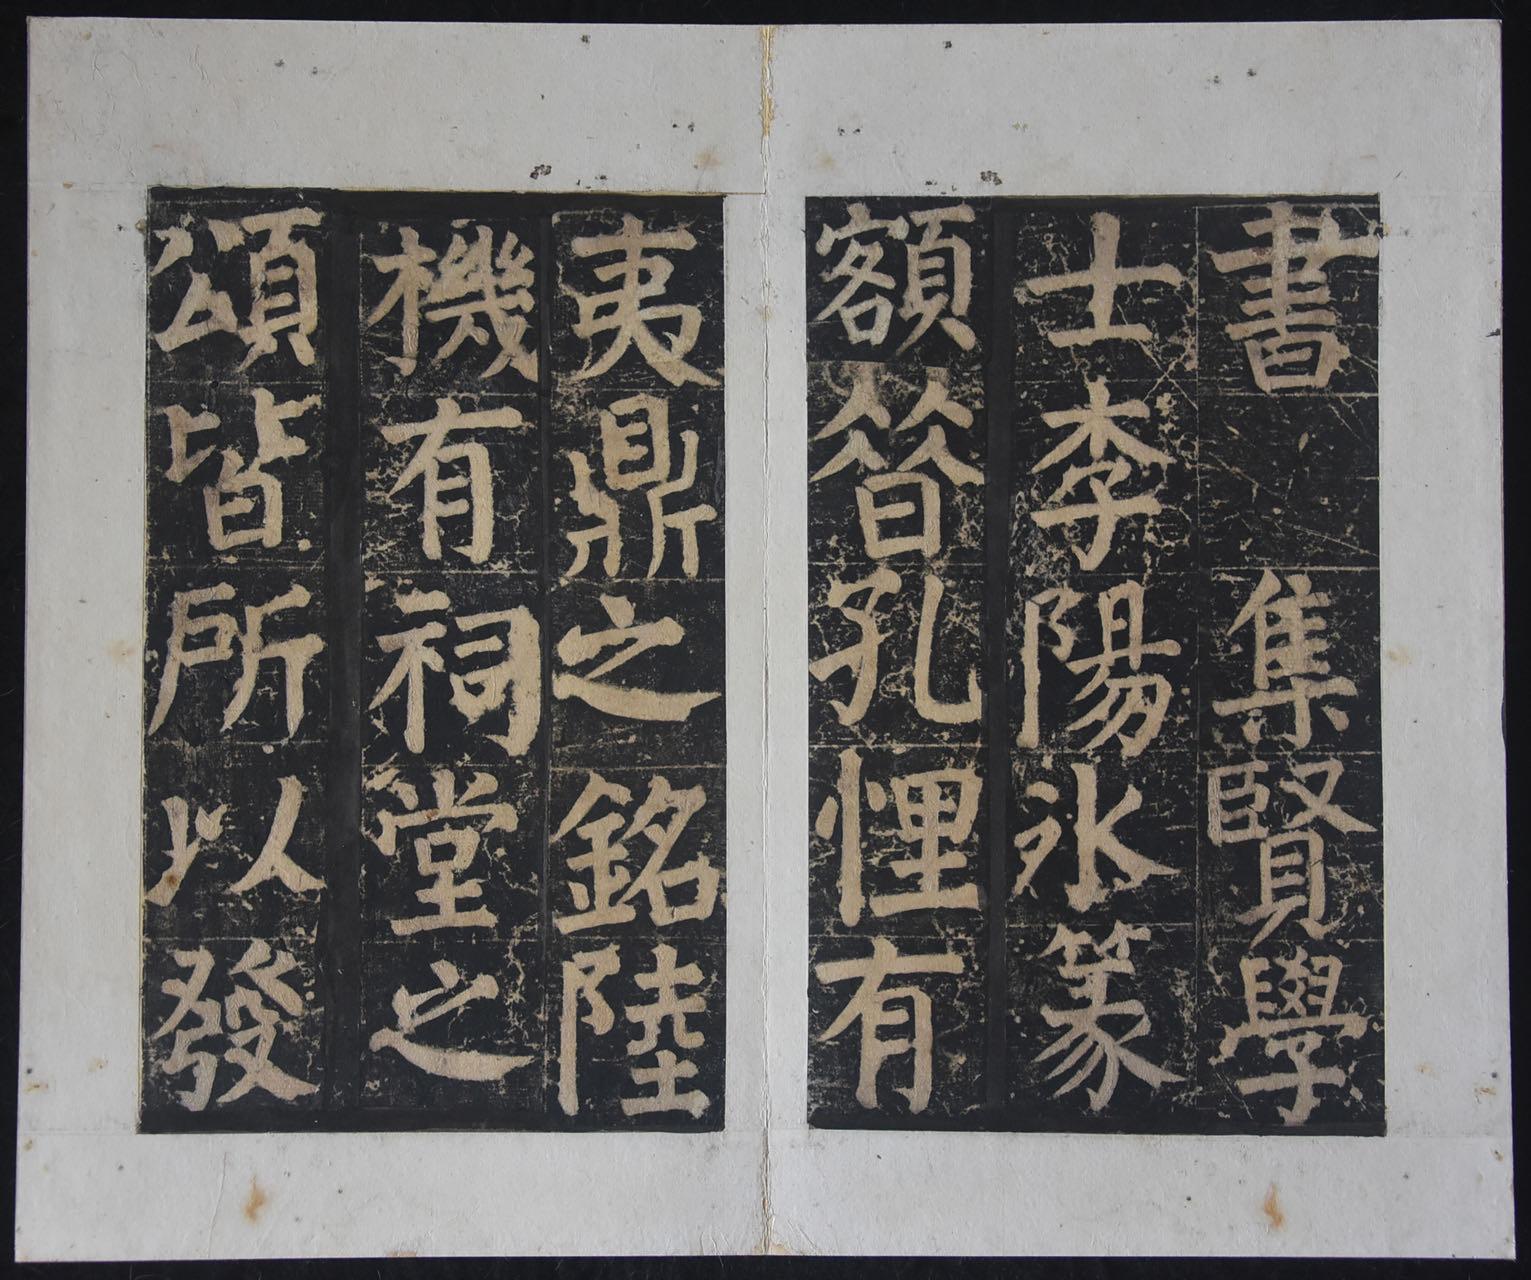 書 集賢學
士李陽冰篆
額晉孔悝有
夷鼎之銘陸
機有祠堂之
頌皆所以發